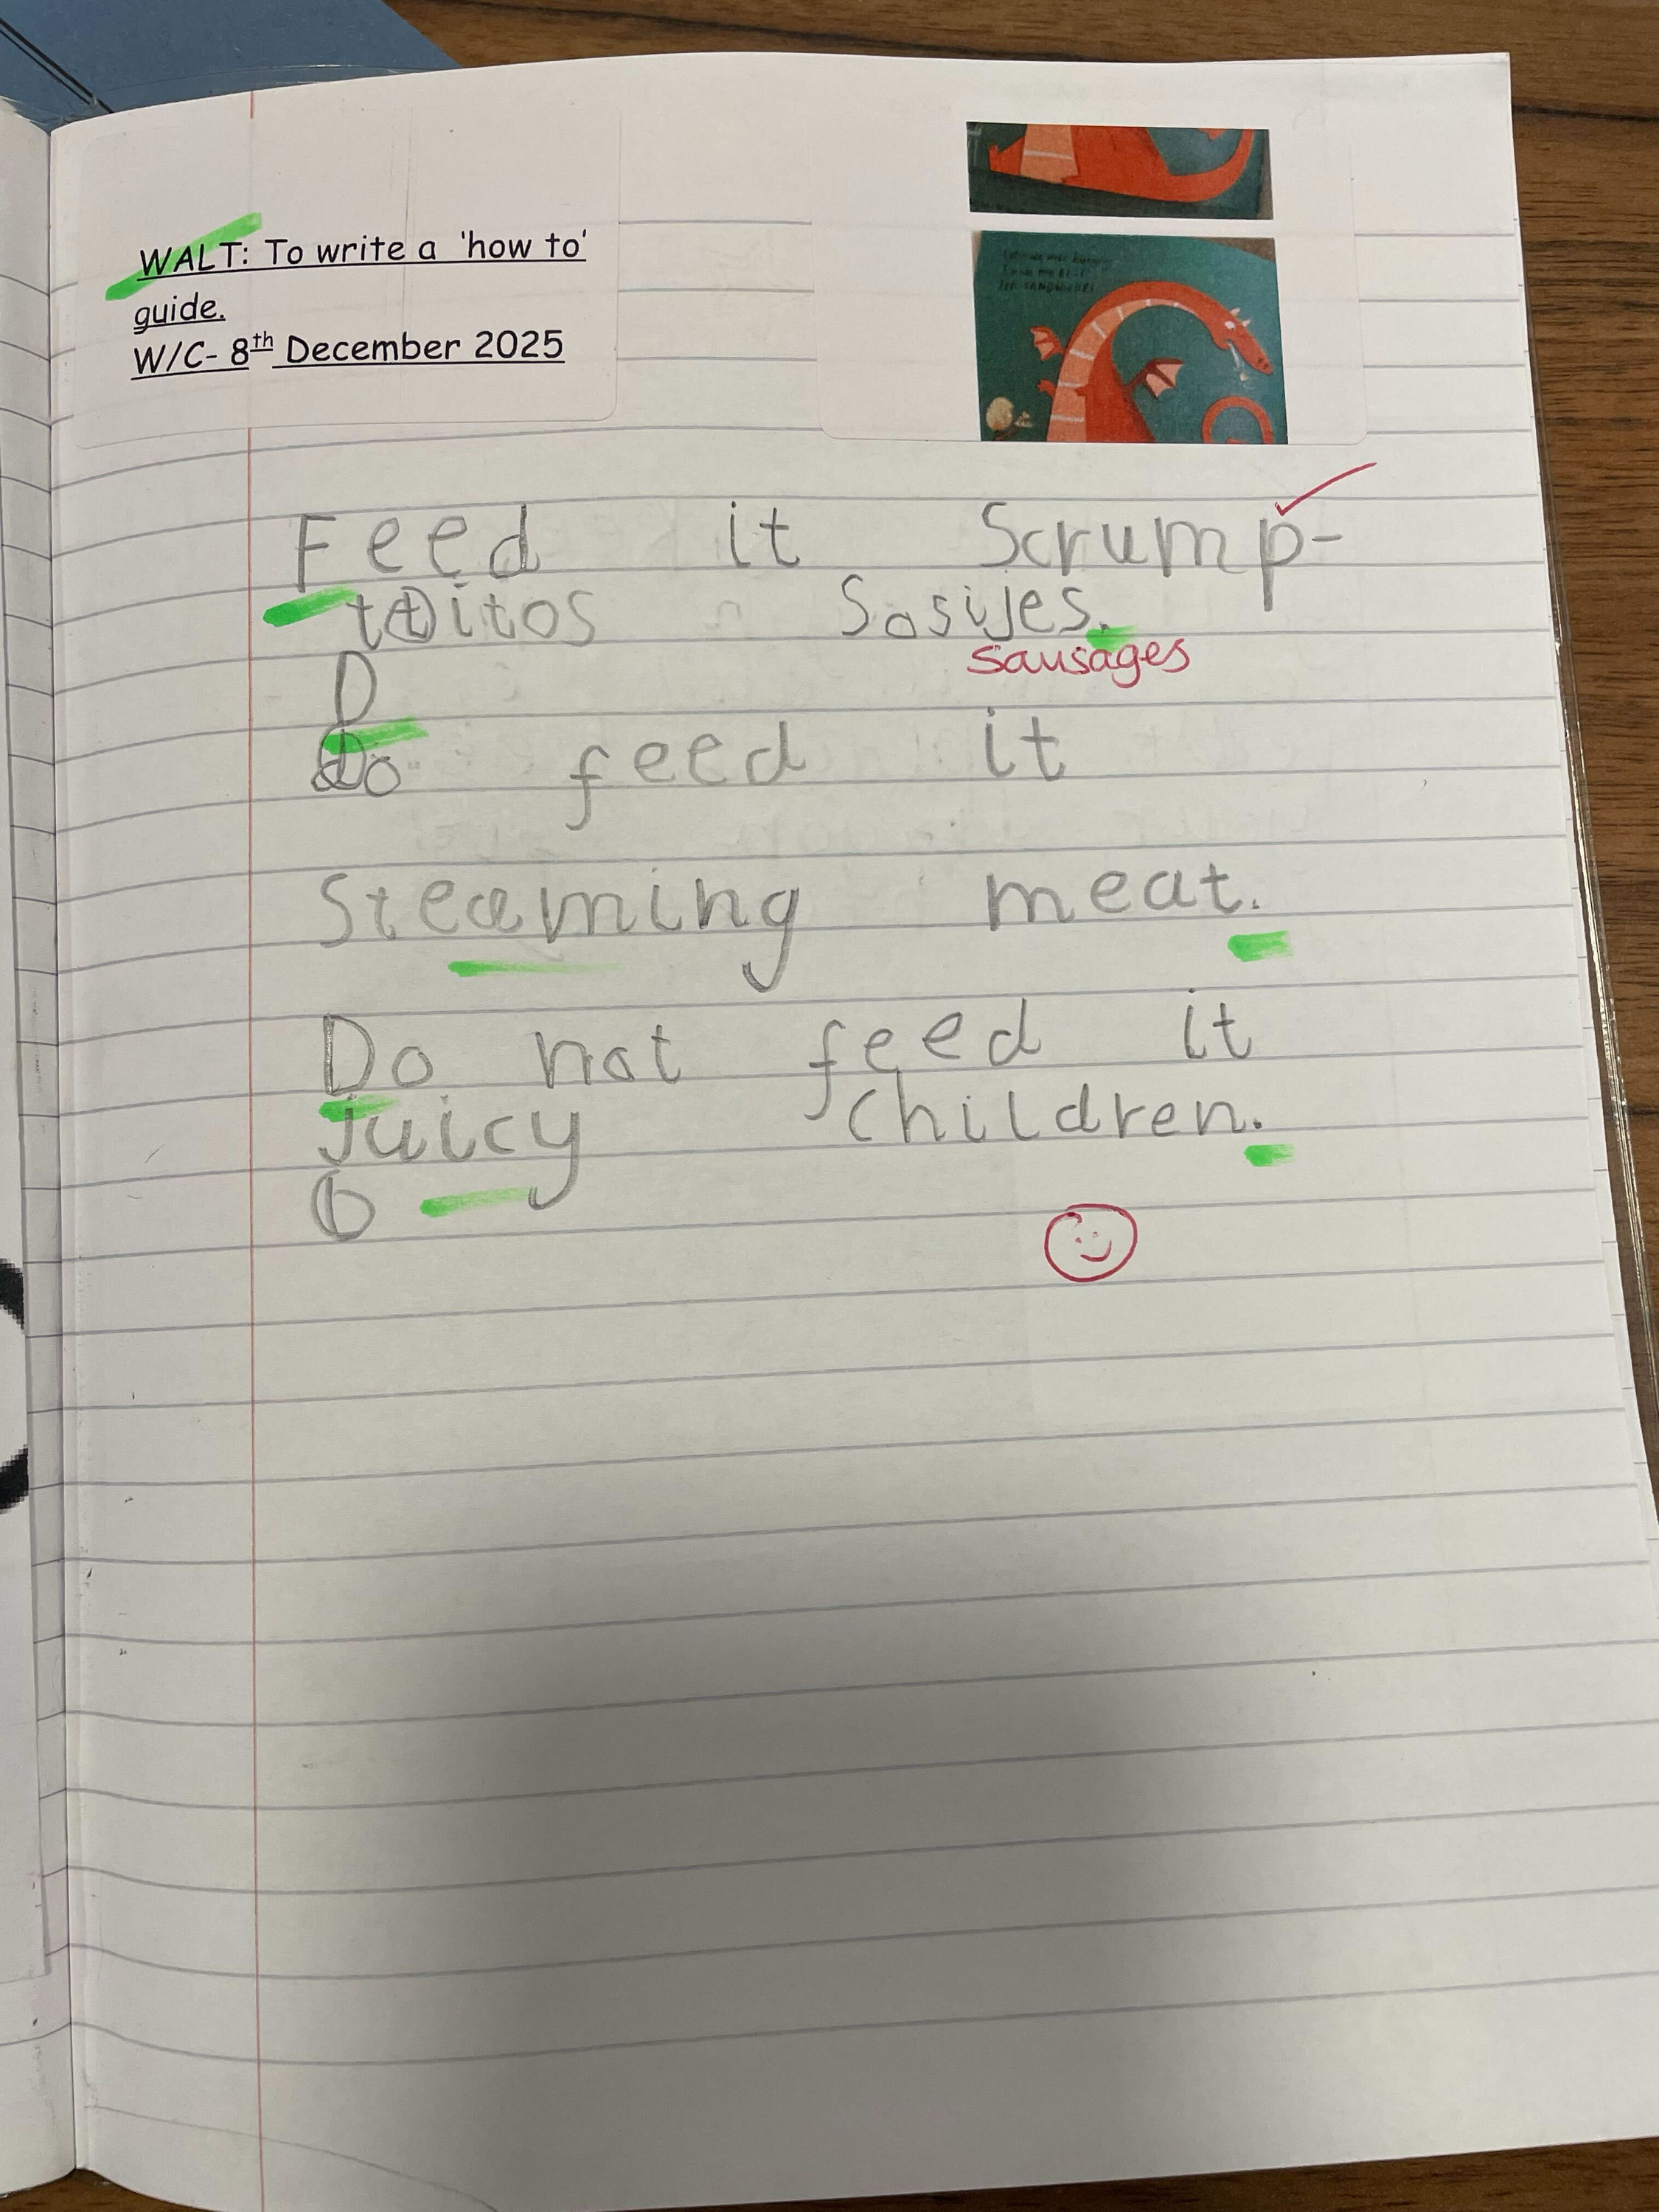 WALT: To write a 'how to'
guide.
W/C- 8th December 2025
Feed it Scrump-
titos Sosijes.
sausages
D
Do feed it
Steaming meat.
Do not feed it
juicy children.